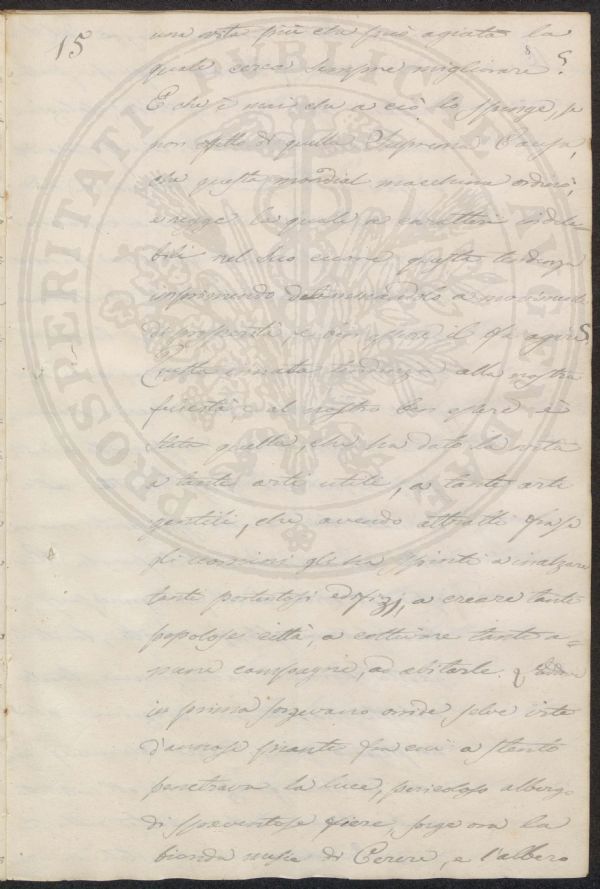 15
una vita più che può agiata la
quale cerca sempre migliorare?
E che è mai che a ciò lo spinge, se
non effetto di quella Suprema Causa,
che questa mondial macchina ordinò,
e regge la quale a caratteri indele-
bili nel suo cuore questa tendenza
imprimendo determinandolo a
di prosperità, e il fa agire
Questa innata tendenza alla nostra
felicità e al nostro ben essere è
stata quella, che ha dato la vita
a tante arti utili, a tante arti
gentili, che avendo attratti fra se
gli uomini gli ha spinti a inalzare
tanti portentosi edifizj, a creare tante
popolose città, a coltivare tante a-
mene campagne, ad abitarle.
in prima sorgevano orride selve irte
d'annose piante fra cui a stento
penetrava la luce, pericoloso albergo
di spaventose fiere, sorge ora la
bionda messe di Cerere, e l'albero
PROSPERITATI PUBLICAE AUGENDAE